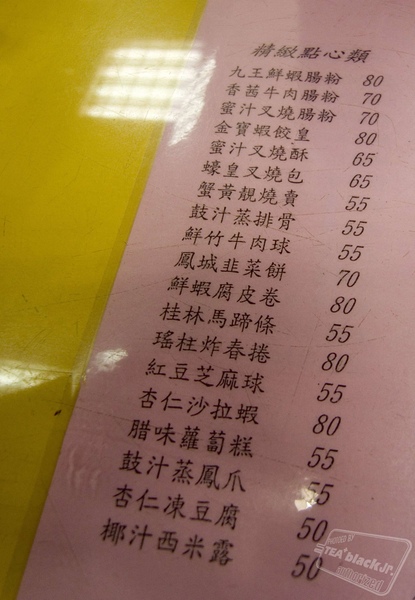 精緻點心類
九王鮮蝦腸粉 80
香茜牛肉腸粉 70
蜜汁叉燒腸粉 70
金寶蝦餃皇 80
蜜汁叉燒酥 65
蠔皇叉燒包 65
蟹黃靚燒賣 55
鼓汁蒸排骨 55
鮮竹牛肉球 55
鳳城韭菜餅 70
鮮蝦腐皮卷 80
桂林馬蹄條 55
瑤柱炸春捲 80
紅豆芝麻球 55
杏仁沙拉蝦 80
腊味蘿蔔糕 55
鼓汁蒸鳳爪 55
杏仁凍豆腐 50
椰汁西米露 50
TEA
blackjr.